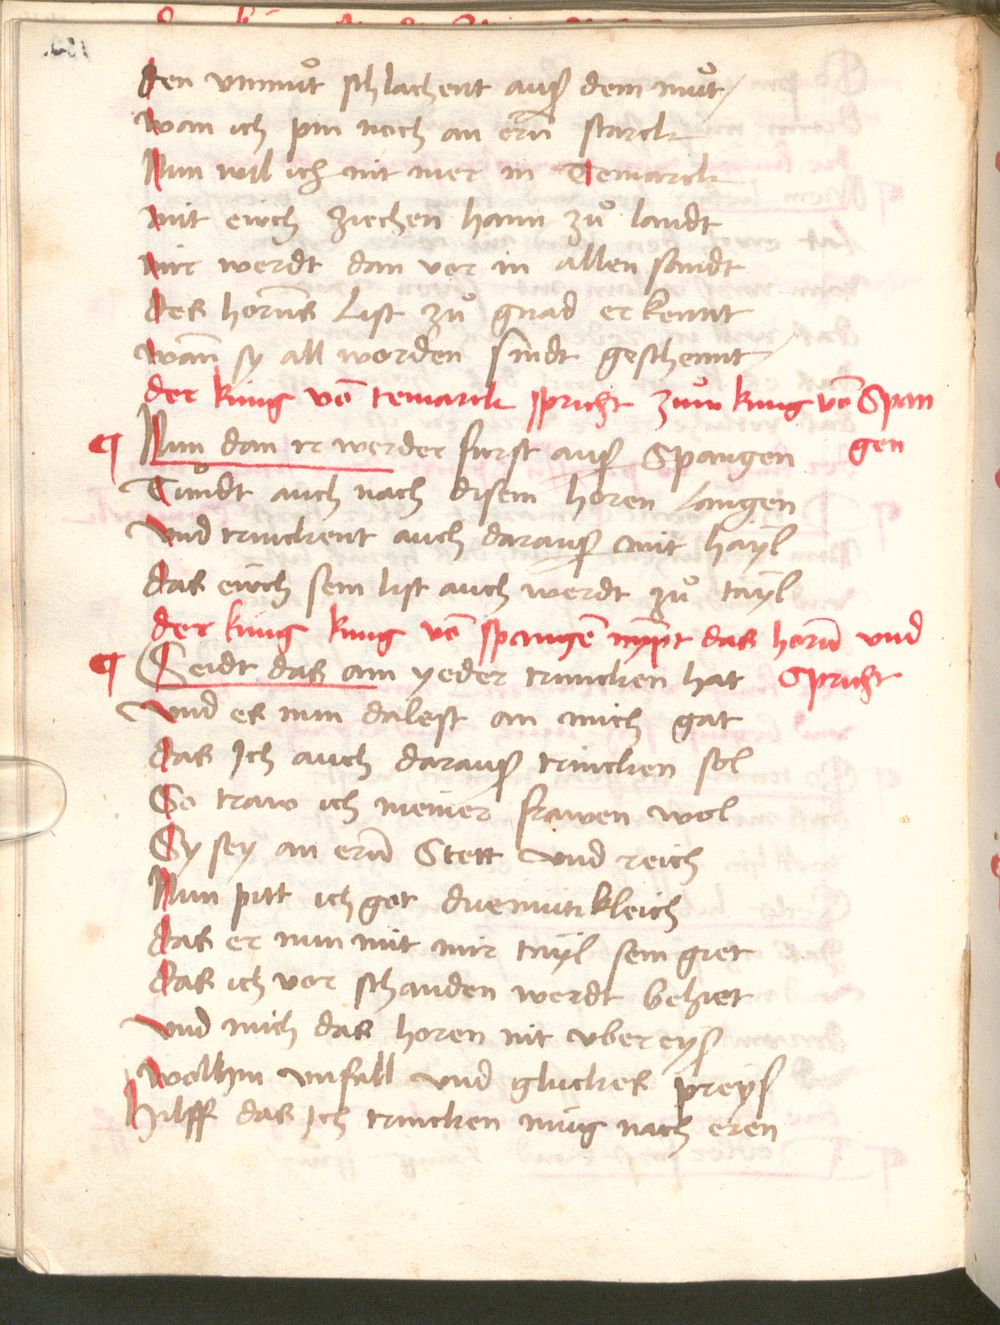 den vnmuͦt schlachent auß dem muͦt
wan ich pin noch an ern̄ starck
Nun wil ich nit mer in Temarck
mit ewch ziechen haim zuͦ landt
mir werdt dan vor in allen sandt
des horn̄s List zuͦ gnad erkennt
wan̄ sy all worden sindt geschennt
der king vō temarck spricht zuͦm king vō Span
gen
¶ Nun dan ir werder furst auß Spangen
Tuͦndt auch nach disem horen langen
Vnd trinckent auch darauß mit hayl
das ewch sein list auch werdt zuͦ tayl
der king king vō spangē nympt das horn̄ vnd
Spricht
¶ Seidt das ain yeder trincken hat
Vnd es nun dalest an mich gat
das Ich auch darauß trincken sol
So traw ich meiner frawen wol
Sy sey an ern̄ Stett vnd reich
Nun pitt ich got diemutikleich
das er nun mit mir tayl sein giet
das ich vor schanden werdt behiet
Vnd mich das horen nit vbereyß
wolhin vnfall vnd gluckes preyß
Hilff das Ich trincken mug nach eren